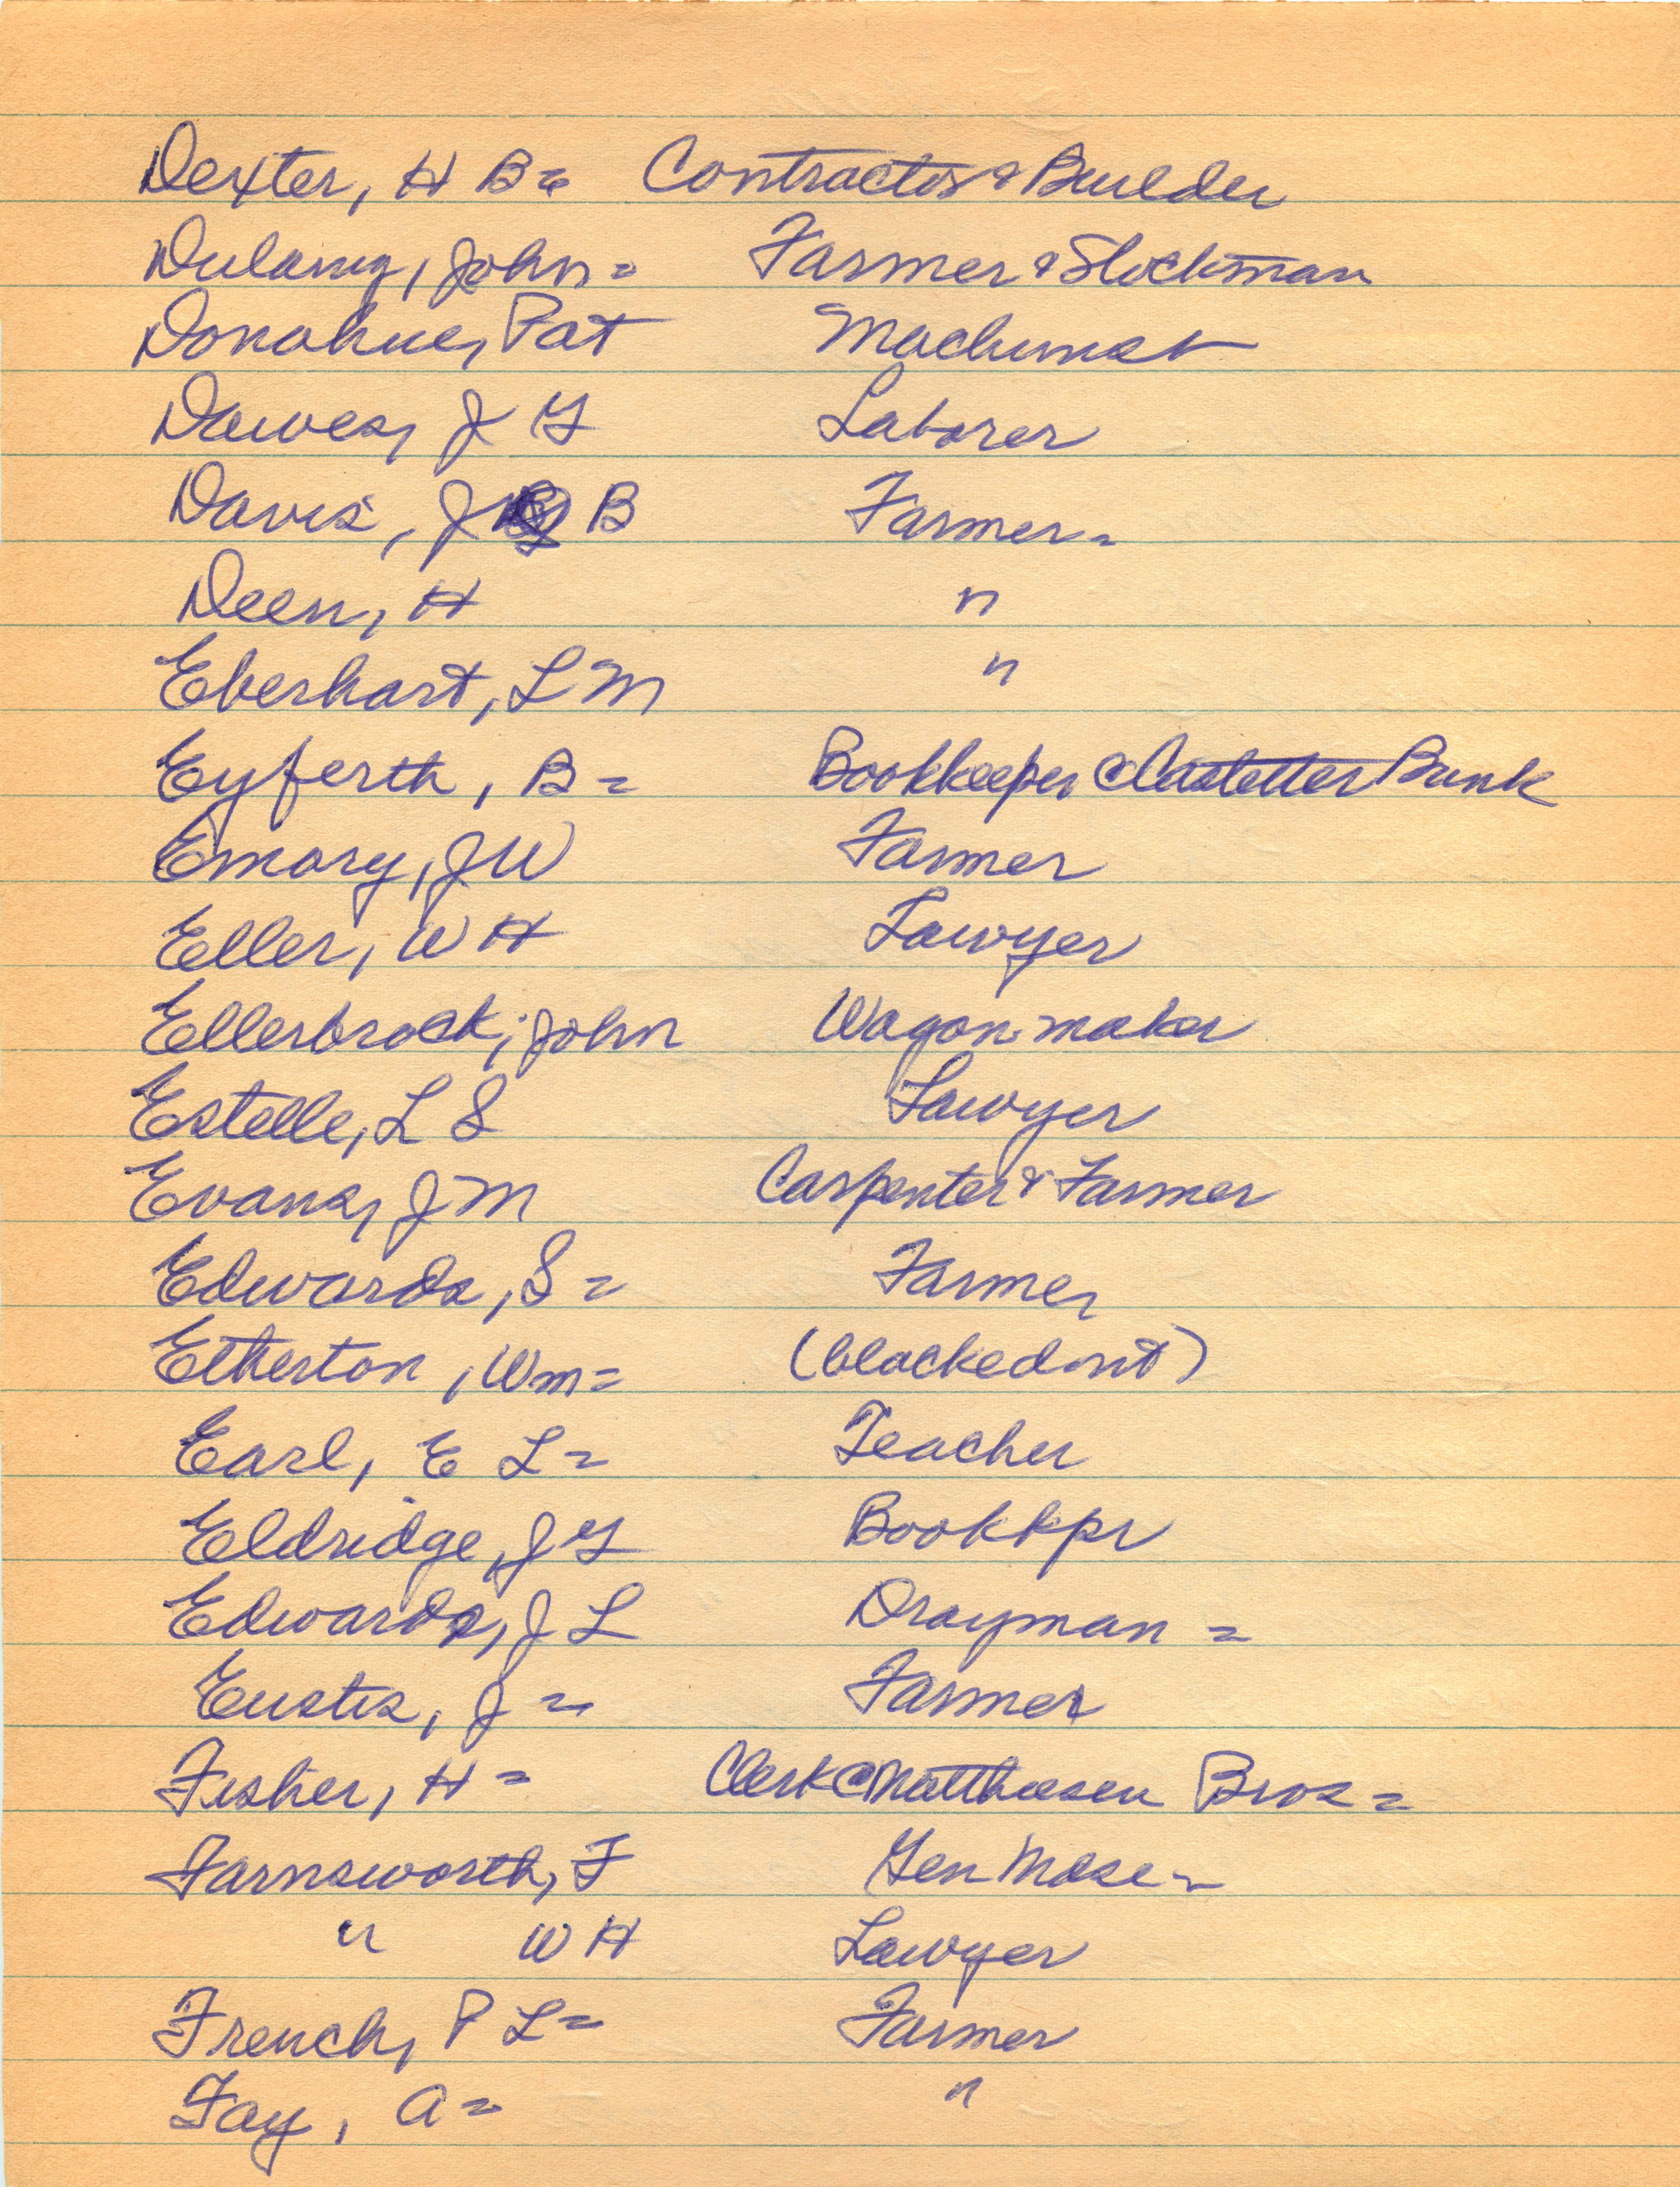 Dexter, H B= Contractor & Builder
Dulany, John= Farmer & Stockman
Donohue, Pat Machinist
Dawes, J G Laborer
Davis, J B Farmer=
Deen, H "
Eberhart, L M "
Eyferth, B= Bookkeeper @ Castetter Bank
Emory, J W Farmer
Eller, W H Lawyer
Ellerbrock, John Wagon maker
Estelle, L S Lawyer
Evans, J M Carpenter & Farmer
Edwards, S= Farmer
Etherton, Wm= (blacked out)
Earl, E L= Teacher
Eldridge, J G Bookkpr
Edwards, J L Drayman=
Eustis, J= Farmer
Fisher, H= Clerk @ Matthiesen Bros=
Farnsworth, F Gen Mdse=
" W H Lawyer
French, P L= Farmer
Fay, A= "